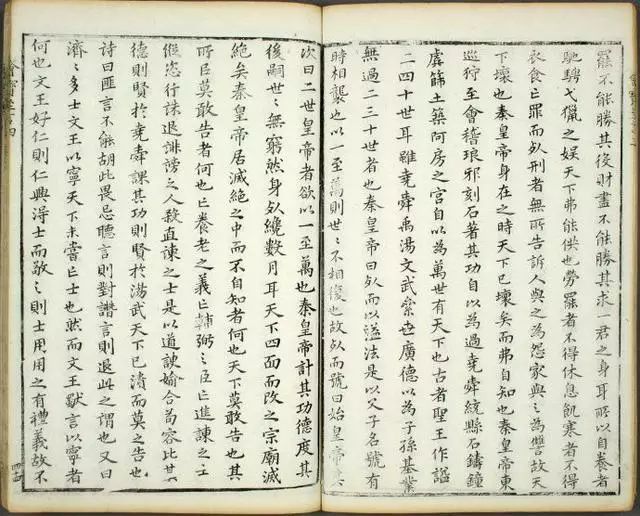 罷不能勝其役財盡不能勝其求一君之身耳所以自養者
馳騁弋獵之娛天下弗能供也勞罷者不得休息飢寒者不得
衣食亡罪而死刑者無所告訴人與之為怨家與〻為讐故天
下壞也秦皇帝身在之時天下已壞矣而弗自知也秦皇帝東
巡狩至會稽琅邪刻石著其功自以為過堯舜統縣石鑄鐘
虡篩土築阿房之宮自以為萬世有天下也古者聖王作謚
二四十世耳雖堯舜禹湯文武絫世廣德以為子孫基業
無過二三十世者也秦皇帝曰死而以謚法是以父子名號有
時相襲也以一至萬則世〻不相復也故死而號曰始皇帝其
次曰二世皇帝者欲以一至萬也秦皇帝計其功德度其
後嗣世〻無窮然身死纔數月耳天下四面而攻之宗廟滅
絕矣秦皇帝居滅絕之中而不自知者何也天下莫敢告也其
所以莫敢告者何也亡養老之義亡輔弼之臣亡進諫之士
縱恣行誅退誹謗之人殺直諫之士是以道諛媮合苟容比其
德則賢於堯舜課其功則賢於湯武天下已潰而莫之告也
詩曰匪言不能胡此畏忌聽言則對譖言則退此之謂也又曰
濟〻多士文王以寧天下未嘗亡士也然而文王獨言以寧者
何也文王好仁則仁興得士而敬〻則士用用之有禮義故不